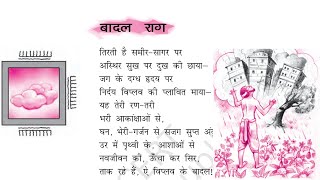 बादल राग
तिरती है समीर-सागर पर
अस्थिर सुख पर दुख की छाया–
जग के दग्ध हृदय पर
निर्दय विप्लव की प्लावित माया–
यह तेरी रण-तरी
भरी आकांक्षाओं से,
घन, भेरी-गर्जन से सजग सुप्त अं
उर में पृथ्वी के, आशाओं से
नवजीवन की, ऊँचा कर सिर,
ताक रहे हैं, ऐ विप्लव के बादल!